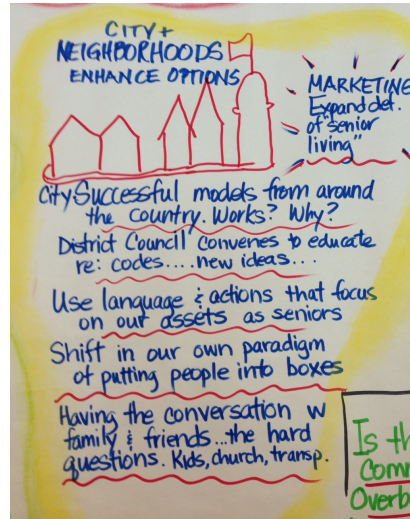 CITY +
NEIGHBORHOODS
ENHANCE OPTIONS
MARKETING
Expand def.
of "senior
living"
City Successful models from around
the country. Works? Why?
District Council convenes to educate
re: codes.... new ideas....
Use language & actions that focus
on our assets as seniors
Shift in our own paradigm
of putting people into boxes
Having the conversation w
family & friends...the hard
questions. Kids, church, transp.
Is